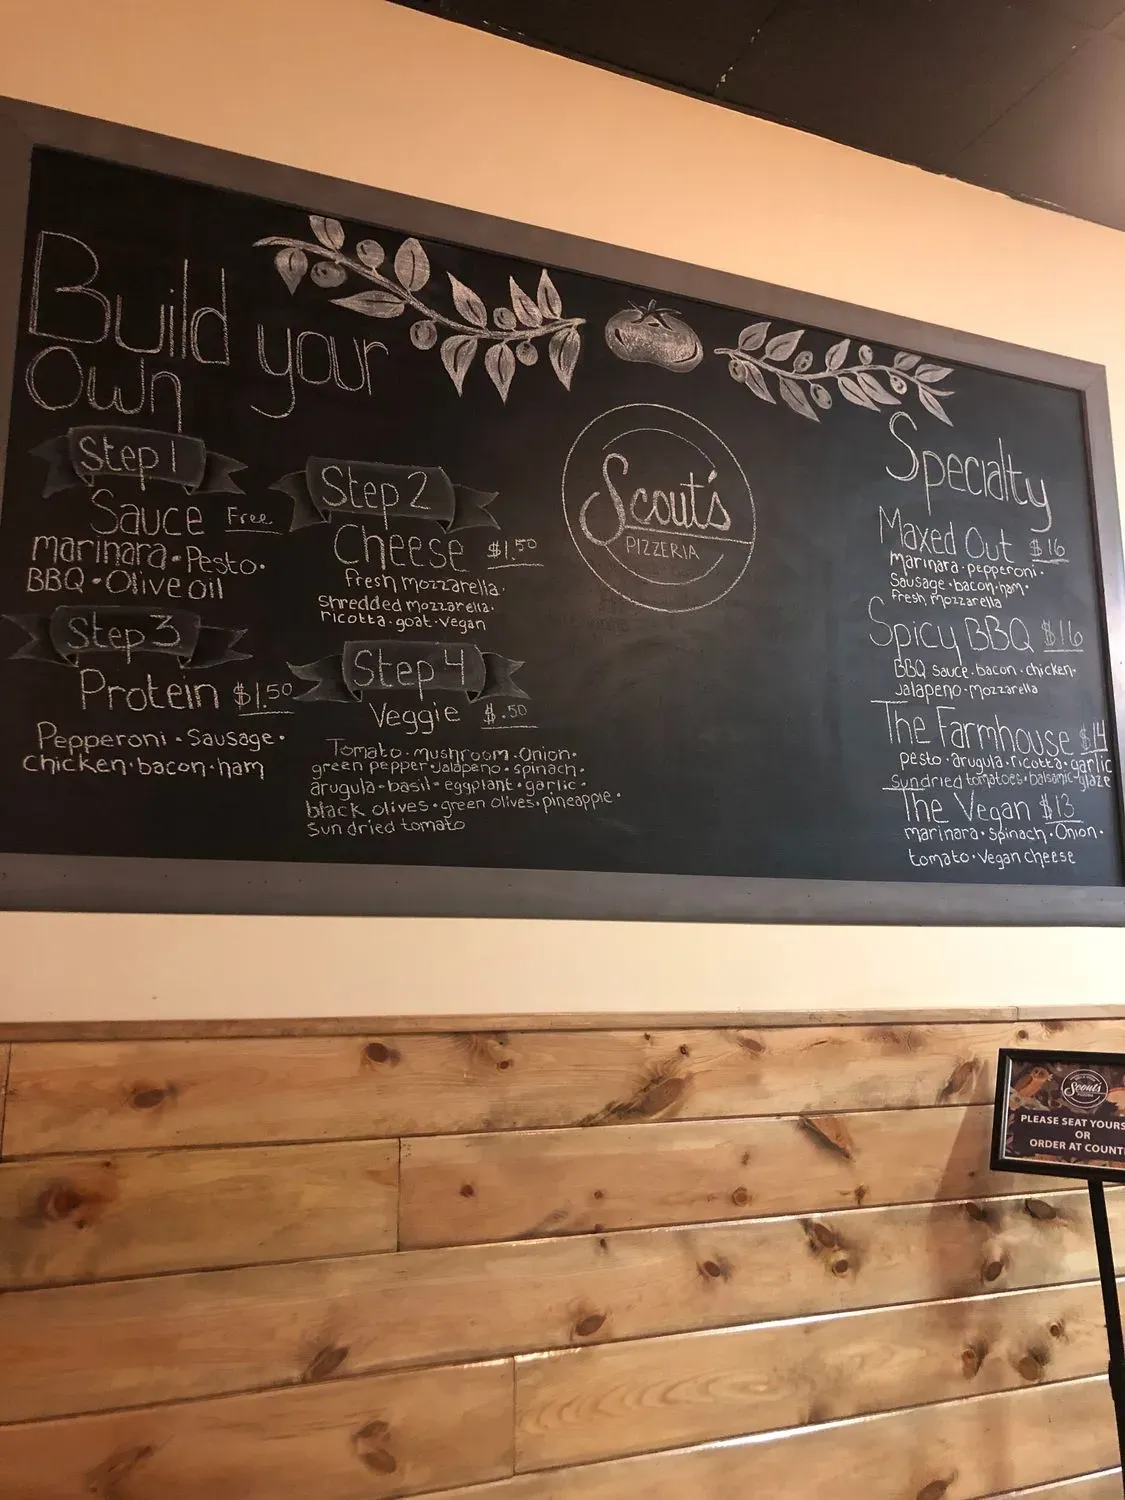 Build your
Own
Step 1
Sauce Free
marinara · Pesto ·
BBQ · Olive oil
Step 2
Cheese $1.50
fresh mozzarella ·
Shredded mozzarella ·
ricotta · goat · vegan
Step 3
Protein $1.50
Pepperoni · Sausage ·
chicken · bacon · ham
Step 4
Veggie $.50
Tomato · mushroom · Onion ·
green pepper · jalapeno · spinach ·
arugula · basil · eggplant · garlic ·
black olives · green olives · pineapple ·
Sun dried tomato
Scout's
PIZZERIA
Specialty
Maxed Out $16
marinara · pepperoni ·
Sausage · bacon · ham ·
fresh mozzarella
Spicy BBQ $16
BBQ sauce · bacon · chicken ·
Jalapeno · mozzarella
The Farmhouse $14
pesto · arugula · ricotta · garlic
Sundried tomatoes · balsamic-glaze
The Vegan $13
marinara · spinach · Onion ·
tomato · Vegan cheese
Scout's
PLEASE SEAT YOURS
OR
ORDER AT COUNT